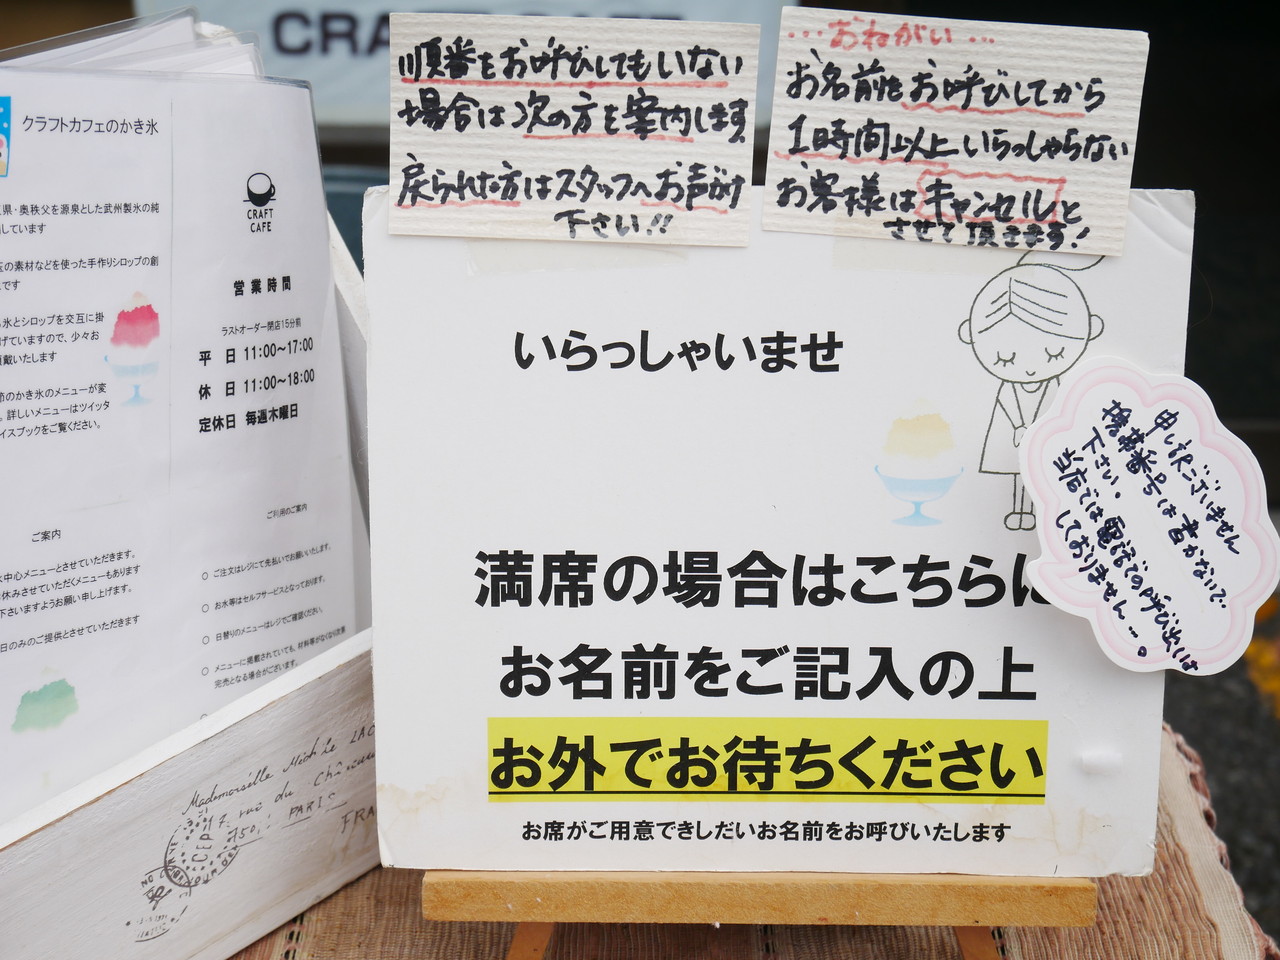 CRA
クラフトカフェのかき氷
県・奥秩父を源泉とした武州製氷の純
しています
の素材などを使った手作りシロップの創
です
氷とシロップを交互に掛
げていますので、少々お
頂戴いたします
節のかき氷のメニューが変
。詳しいメニューはツイッタ
イスブックをご覧ください。
ご案内
中心メニューとさせていただきます。
休みさせていただくメニューもあります
下さいますようお願い申し上げます。
日のみのご提供とさせていただきます
CRAFT
CAFE
営業時間
ラストオーダー閉店15分前
平 日 11:00～17:00
休 日 11:00～18:00
定休日 毎週木曜日
ご利用のご案内
○ ご注文はレジにて先払いでお願いいたします。
○ お水等はセルフサービスとなっております。
○ 日替りのメニューはレジでご確認ください。
○ メニューに掲載されていても、材料等がなくなり次第
完売となる場合がございます。
Mademoiselle
rue du
PARIS
FRA
順番をお呼びしてもいない
場合は次の方を案内します。
戻られた方はスタッフへお声がけ
下さい!!
...おねがい...
お名前をお呼びしてから
1時間以上いらっしゃらない
お客様はキャンセルと
させて頂きます!
いらっしゃいませ
満席の場合はこちらに
お名前をご記入の上
お外でお待ちください
お席がご用意できしだいお名前をお呼びいたします
申し訳ございません
携帯番号は書かないで
下さい。
当店では電話での呼び出しは
しておりません…。